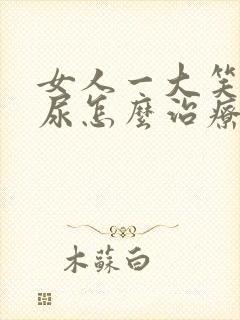 女人一大笑
尿怎麼治療
木蘇白